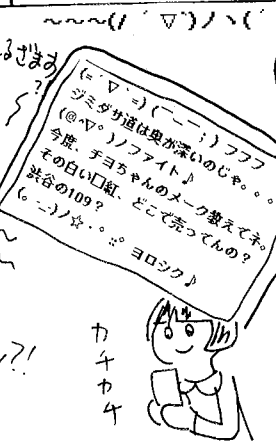 ~~~~(ﾉ ´ ▽`)ﾉヽ(´
るざます
?
(=´∇`=)(￣ー￣;)フフフ
ジミダサ道は奥が深いのじゃ。。。
(@^∇°)ノファイト♪
今度、チヨちゃんのメーク教えてネ。
その白い口紅、どこで売ってんの?
渋谷の109?
(。-_-)ノ☆・。::゜ ヨロシク♪
カチカチ
?!